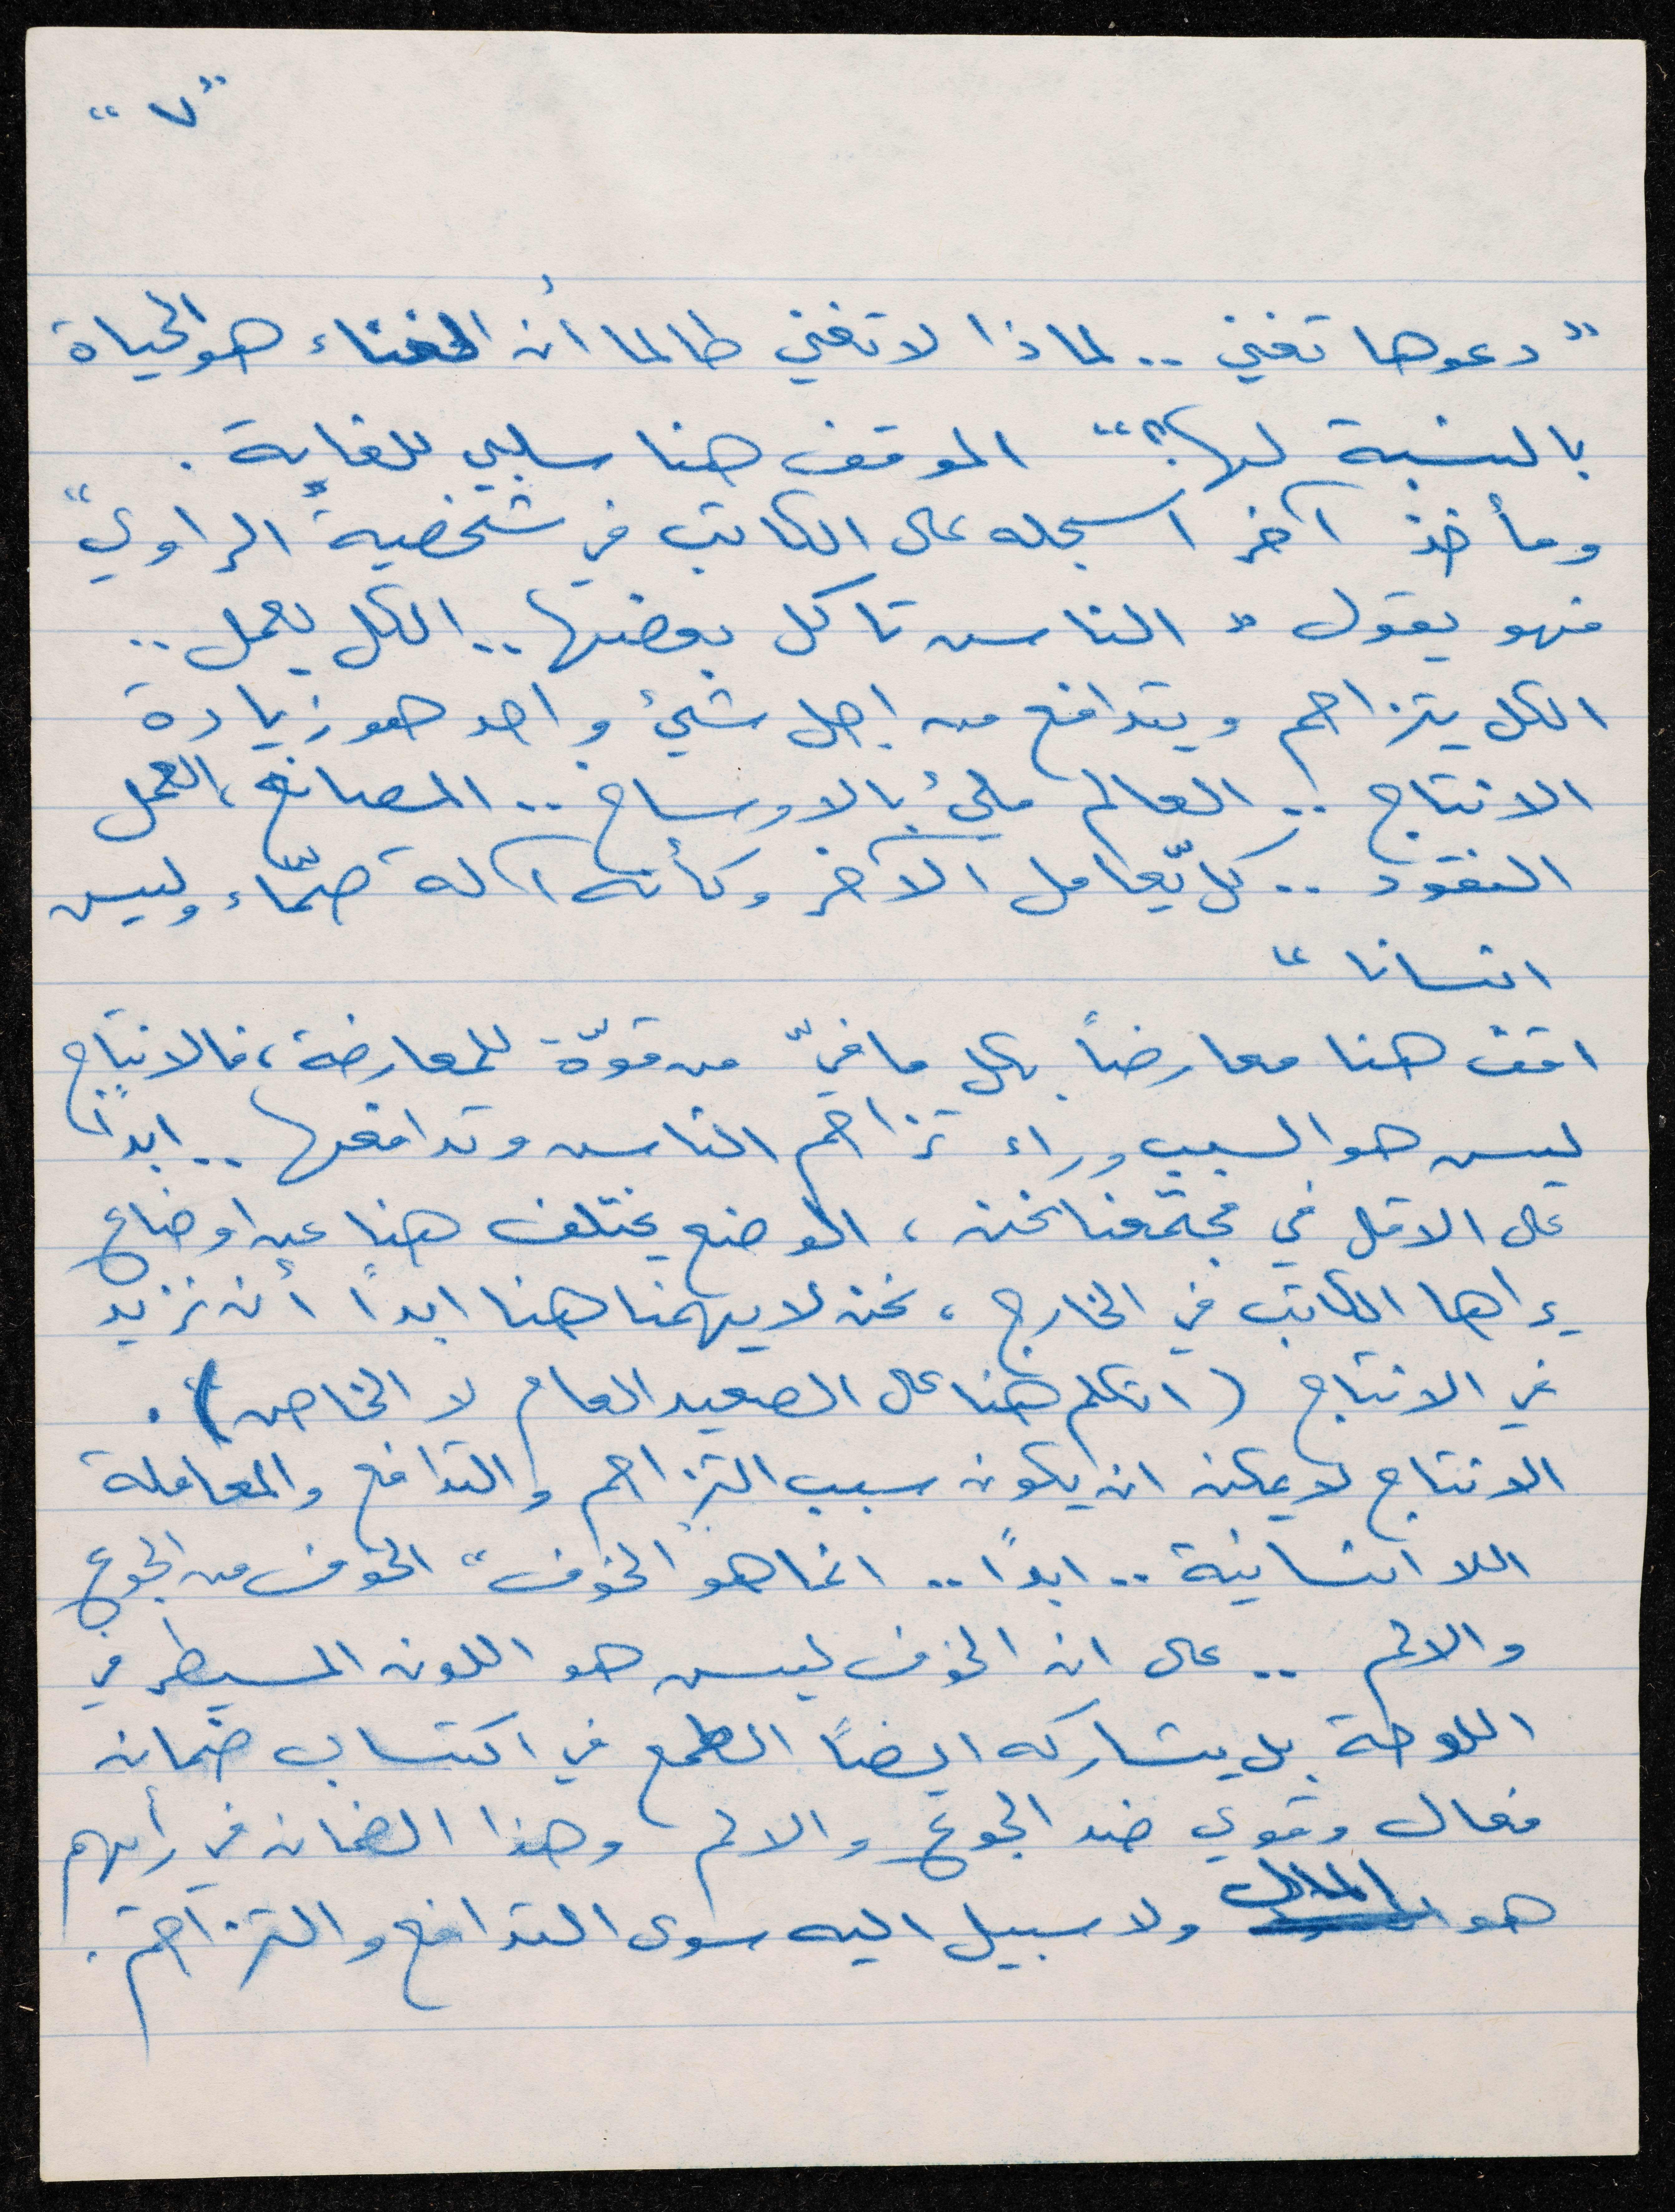 "٧"
"دعوها تغني .. لماذا لا تغني طالما أن الغناء هو الحياة
بالنسبة لها؟" الموقف هنا سلبي للغاية .
ومأخذ آخر اسجله على الكاتب في شخصية "الراوي"
فهو يقول " الناس تاكل بعضها .. الكل يعمل ..
الكل يتزاحم ويتدافع من اجل شيئ واحد هو زيادة
الانتاج .. العالم مليئ بالاوساخ .. المصانع ، العمل
النقود .. كل يّعامل الآخر وكأنه آلة صمّاء وليس
انسانا "
اقف هنا معارضاً بكل ما فيّ من قوّة للمعارضة ، فالانتاج
ليس هو السبب وراء تزاحم الناس وتدافعها .. ابداً
على الاقل في مجتمعنا نحن ، الوضع يختلف هنا عن اوضاع
يراها الكاتب في الخارج ، نحن لا يهمنا هنا ابداً أن نزيد
في الانتاج ( اتكلم هنا على الصعيد العام لا الخاص ) .
الانتاج لا يمكن ان يكون سبب التزاحم والتدافع والمعاملة
اللا انسانية .. ابداً .. انما هو "الخوف" الخوف من الجوع
والالم .. على ان الخوف ليس هو اللون المسيطر في
اللوحة بل يشاركه ايضاً الطمع في اكتساب ضمان
فعال وقوي ضد الجوع والالم وهذا الضمان في رأيهم
هو المال ولا سبيل اليه سوى التدافع والتزاحم .